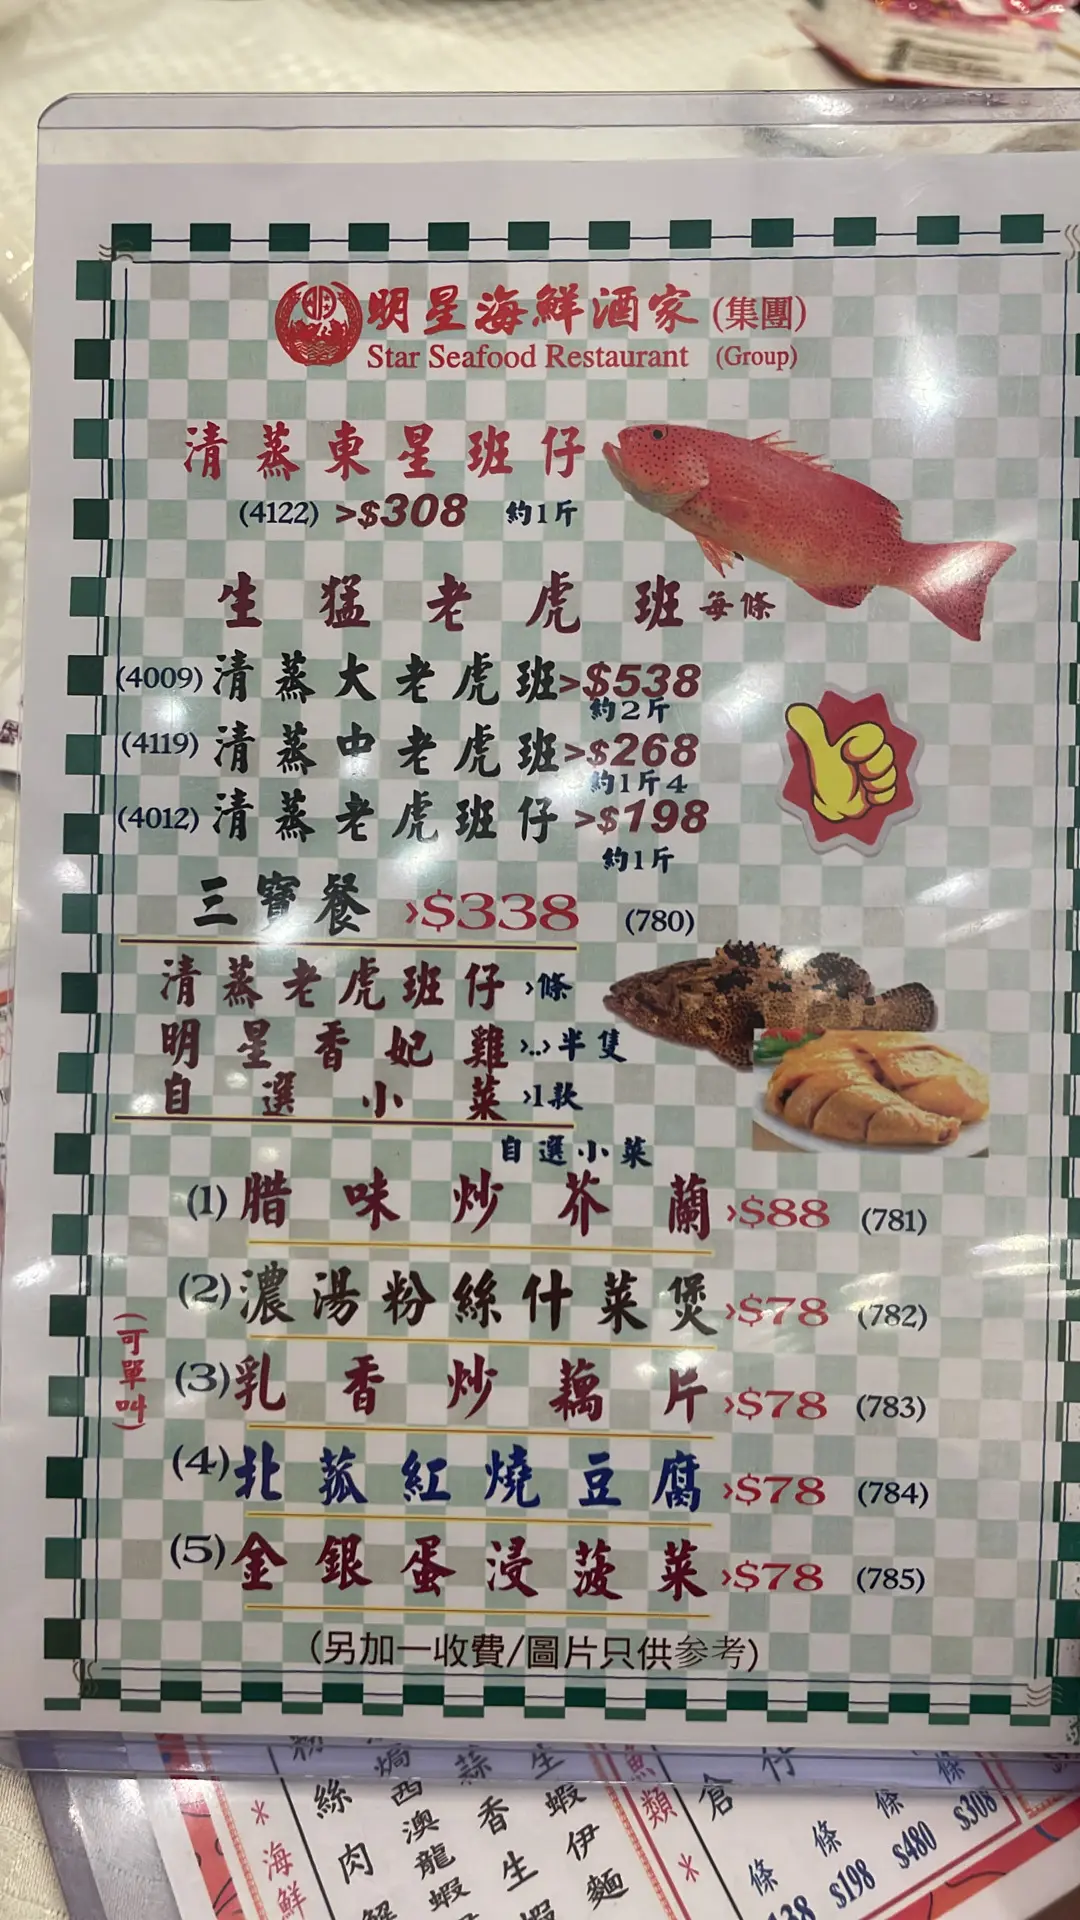 明星海鮮酒家(集團)
Star Seafood Restaurant (Group)
清蒸東星班仔
(4122) >$308 約1斤
生猛老虎班 每條
(4009) 清蒸大老虎班 >$538
約2斤
(4119) 清蒸中老虎班 >$268
約1斤4
(4012) 清蒸老虎班仔 >$198
約1斤
三寶餐 >$338 (780)
清蒸老虎班仔 >條
明星香妃雞 >..>半隻
自選小菜 >1款
自選小菜
(1) 腊味炒芥蘭 >$88 (781)
(2) 濃湯粉絲什菜煲 >$78 (782)
(可單叫)
(3) 乳香炒藕片 >$78 (783)
(4) 北菰紅燒豆腐 >$78 (784)
(5) 金銀蛋浸菠菜 >$78 (785)
(另加一收費/圖片只供参考)
*海鮮
粉絲肉蟹
焗西澳龍蝦
蒜香生蝦
生蝦伊麵
魚類*
倉
仔
條
條 $198
條 $480
條 $308